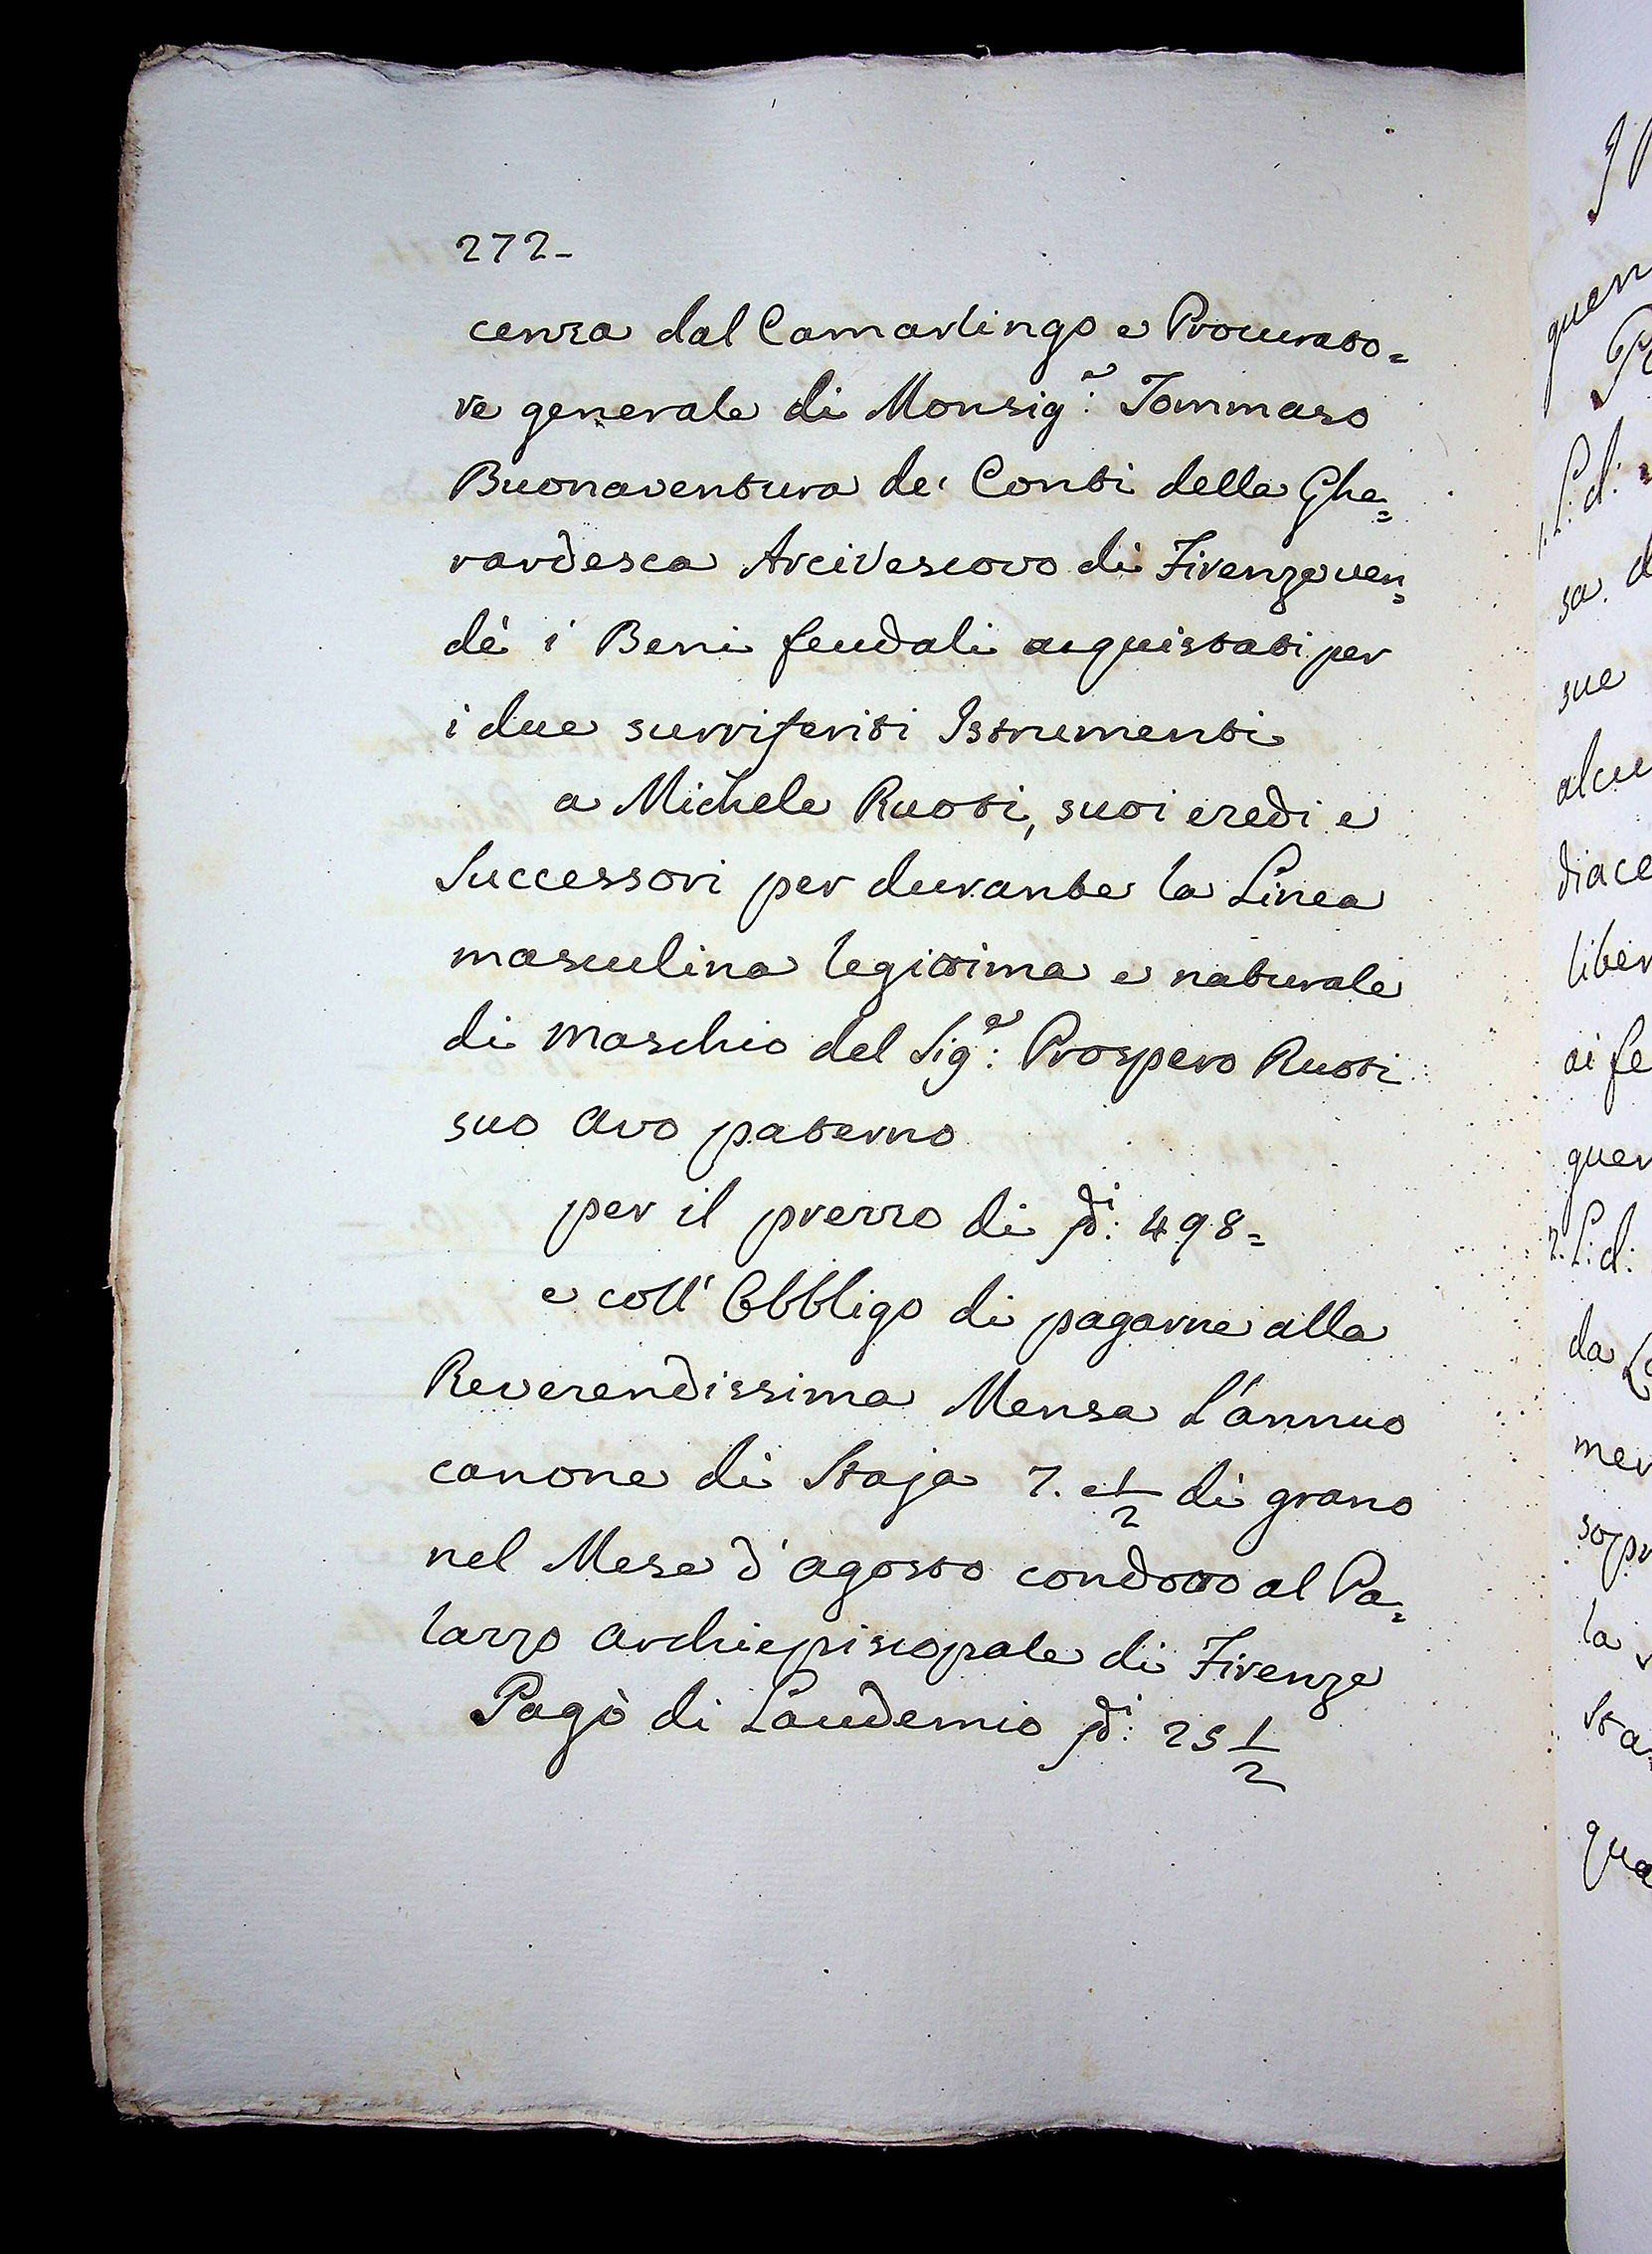 272-
cenza dal Camarlingo e Procurato=
re generale di Monsig.e Tommaso
Buonaventura de' Conti della Ghe=
rardesca Arcivescovo di Firenze ven=
dè i Beni feudali acquistati per
i due surriferiti Istrumenti
a Michele Ruoti, suoi eredi e
Successori per durante la Linea
masculina legittima e naturale
di Maschio del Sig.e: Prospero Ruoti
suo Avo paterno
per il prezzo di di: 498=
e coll' Obbligo di pagarne alla
Reverendissima Mensa l'annuo
canone di Staja 7. e 1/2 di grano
nel Mese d'agosto condotto al Pa=
lazzo archiepiscopale di Firenze
Pagò di Laudemio di: 25 1/2
quen
L: d:
sa. d
sue
alcu
diace
liber
ai fe
quer
2. L: d:
da
mer
sopr
la
sta
qua